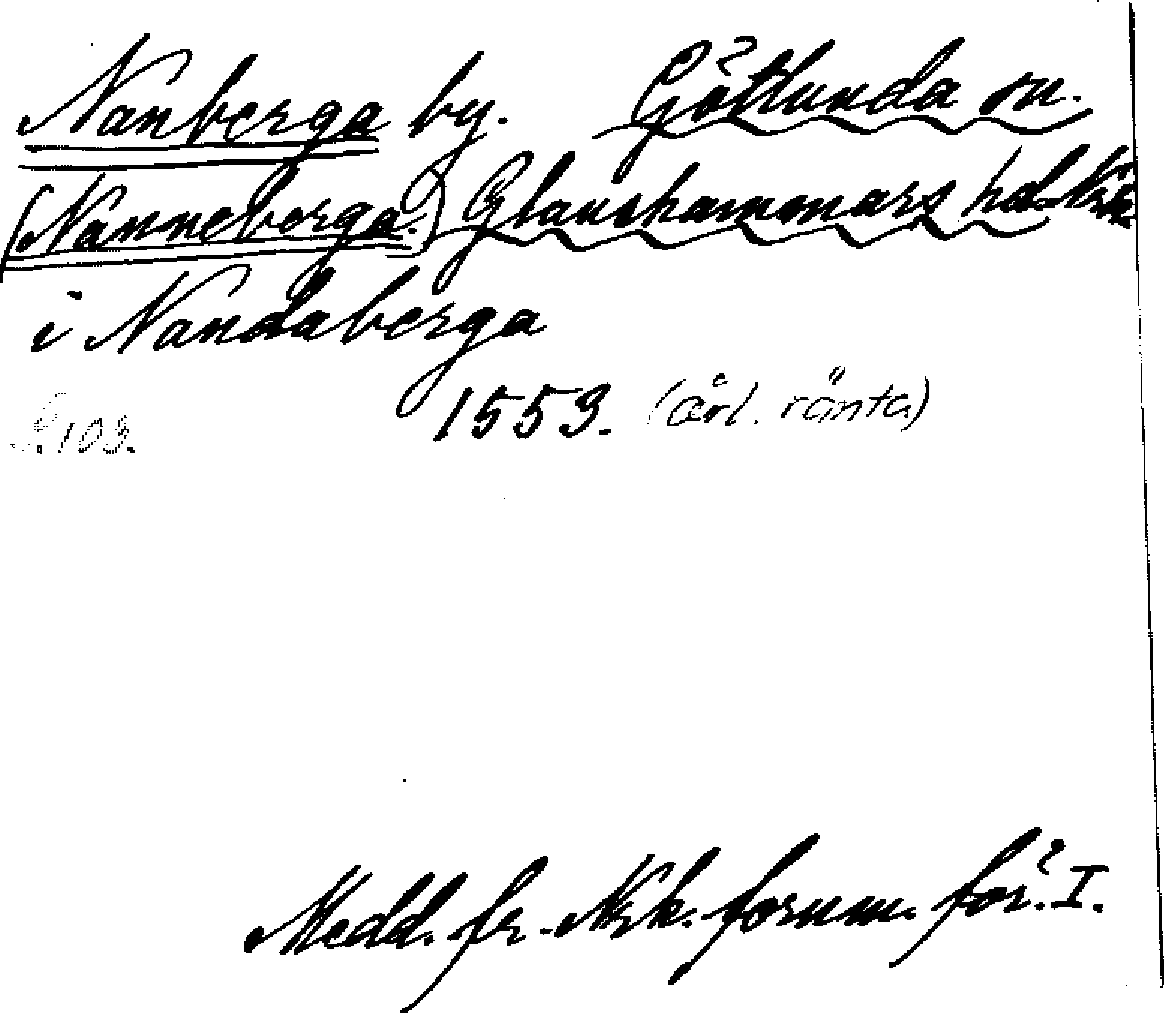 Nanberga by. Götlunda sn.
(Nanneberga.) Glanshammars hd. Nrk
i Nandaberga
1553. (årl. ränta)
S. 103.
Medd. fr. Nrk. fornm. för. I.